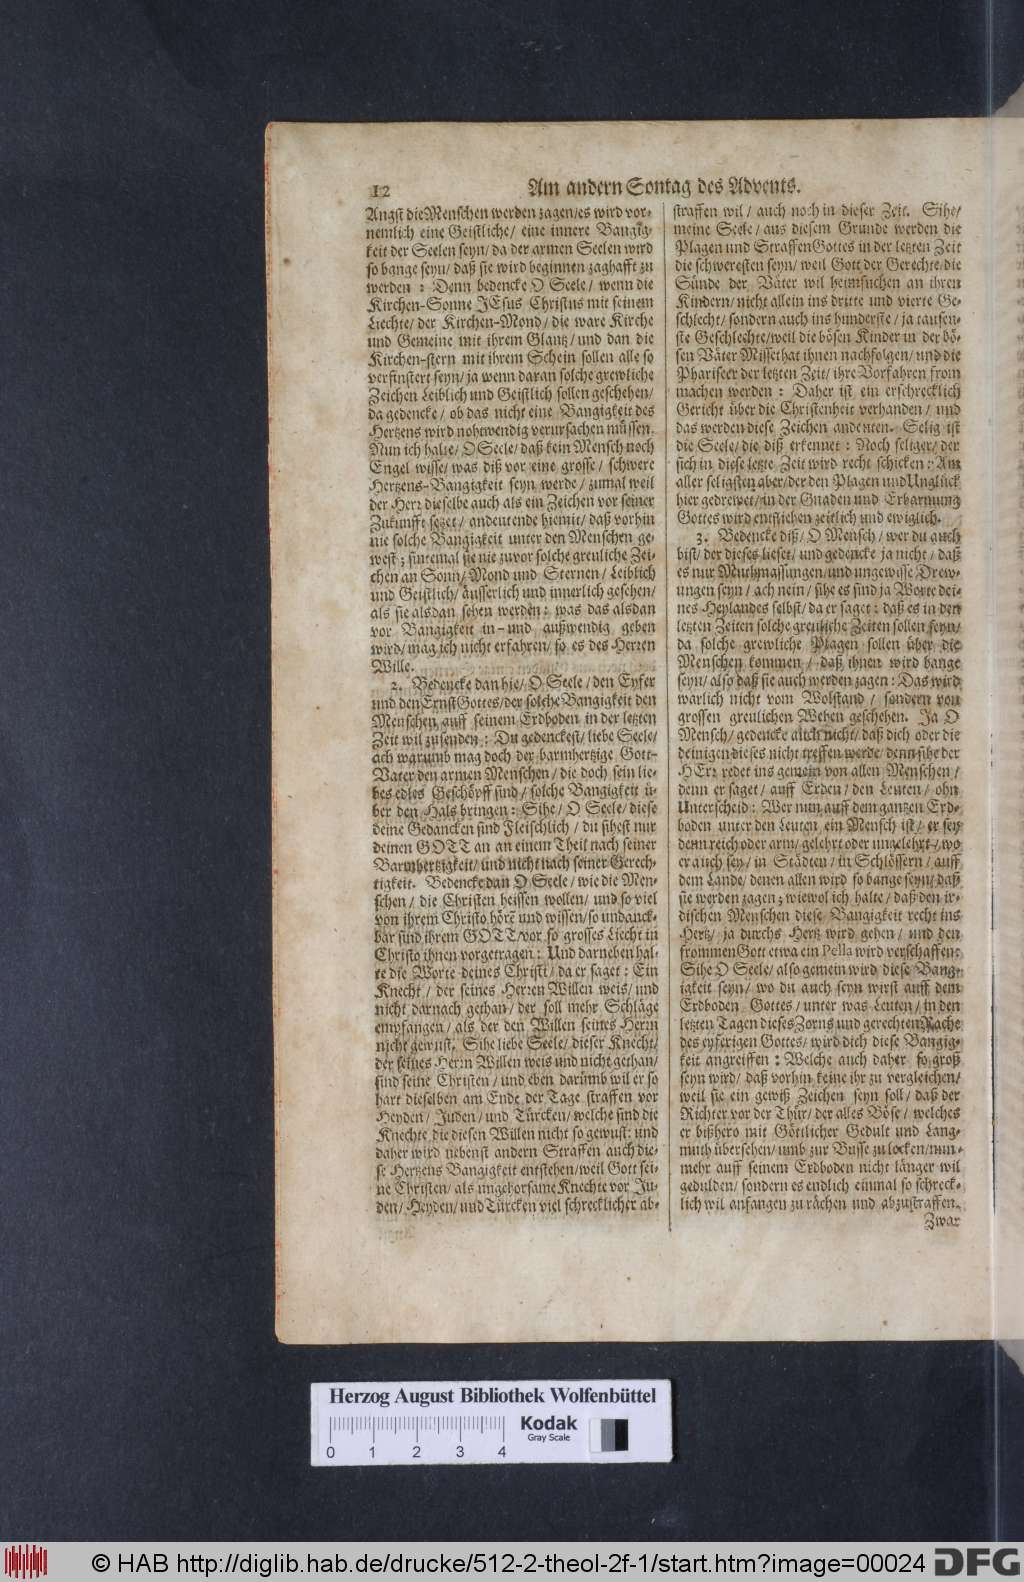 12
Am andern Sontag des Advents.
Angst die Menschen werden zagen/es wird vor-
nemlich eine Geistliche/ eine innere Bangig-
keit der Seelen seyn/ da der armen Seelen wird
so bange seyn/ daß sie wird beginnen zaghafft zu
werden : Denn bedencke O Seele/ wenn die
Kirchen-Sonne JEsus Christus mit seinem
Liechte/ der Kirchen-Mond/ die ware Kirche
und Gemeine mit ihrem Glantz/ und dan die
Kirchen-stern mit ihrem Schein sollen alle so
verfinstert seyn/ ja wenn daran solche grewliche
Zeichen Leiblich und Geistlich sollen geschehen/
da gedencke/ ob das nicht eine Bangigkeit des
Hertzens wird nohtwendig verursachen müssen.
Nun ich halte/ O Seele/ daß kein Mensch noch
Engel wisse/ was diß vor eine grosse/ schwere
Hertzens-Bangigkeit seyn werde/ zumal weil
der Herr dieselbe auch als ein Zeichen vor seiner
Zukunfft setzet/ andeutende hiemit/ daß vorhin
nie solche Bangigkeit unter den Menschen ge-
west; sintemal sie nie zuvor solche greuliche Zei-
chen an Sonn/ Mond und Sternen/ Leiblich
und Geistlich/ äusserlich und innerlich gesehen/
als sie alsdan sehen werden: was das alsdan
vor Bangigkeit in- und außwendig geben
wird/ mag ich nicht erfahren/ so es des Herren
Wille.
2. Bedencke dan hie/ O Seele/ den Eyfer
und den Ernst Gottes/ der solche Bangigkeit den
Menschen auff seinem Erdboden in der letzten
Zeit wil zusenden : Du gedenckest/ liebe Seele/
ach warumb mag doch der barmhertzige Gott-
Vater den armen Menschen/ die doch sein lie-
bes edles Geschöpff sind/ solche Bangigkeit ü-
ber den Hals bringen: Sihe/ O Seele/ diese
deine Gedancken sind Fleischlich/ du sihest nur
deinen GOTT an an einem Theil nach seiner
Barmhertzigkeit/ und nicht nach seiner Gerech-
tigkeit. Bedencke dan O Seele/ wie die Men-
schen/ die Christen heissen wollen/ und so viel
von ihrem Christo hörē und wissen/ so undanck-
bar sind ihrem GOTT/ vor so grosses Liecht in
Christo ihnen vorgetragen: Und darneben hal-
te die Worte deines Christi/ da er saget: Ein
Knecht/ der seines Herren Willen weis/ und
nicht darnach gethan/ der soll mehr Schläge
empfangen/ als der den Willen seines Herrn
nicht gewust. Sihe liebe Seele/ dieser Knecht/
der seines Herrn Willen weis und nicht gethan/
sind seine Christen/ und eben darümb wil er so
hart dieselben am Ende der Tage straffen vor
Heyden/ Juden/ und Türcken/ welche sind die
Knechte die diesen Willen nicht so gewust: und
daher wird nebenst andern Straffen auch die-
se Hertzens Bangigkeit entstehen/ weil Gott sei-
ne Christen/ als ungehorsame Knechte vor Ju-
den/ Heyden/ und Türcken viel schrecklicher ab-
straffen wil/ auch noch in dieser Zeit. Sihe/
meine Seele/ aus diesem Grunde werden die
Plagen und Straffen Gottes in der letzten Zeit
die schweresten seyn/ weil Gott der Gerechte/ die
Sünde der Väter wil heimsuchen an ihren
Kindern/ nicht allein ins dritte und vierte Ge-
schlecht/ sondern auch ins hunderste/ ja tausen-
ste Geschlechte/ weil die bösen Kinder in der bö-
sen Väter Missethat ihnen nachfolgen/ und die
Phariseer der letzten Zeit/ ihre Vorfahren from
machen werden : Daher ist ein erschrecklich
Gericht über die Christenheit verhanden/ und
das werden diese Zeichen andeuten. Selig ist
die Seele/ die diß erkennet : Noch seliger/ der
sich in diese letzte Zeit wird recht schicken: Am
aller seligsten aber/ der den Plagen und Unglück
hier gedrewet/ in der Gnaden und Erbarmung
Gottes wird entfliehen zeitlich und ewiglich.
3. Bedencke diß/ O Mensch/ wer du auch
bist/ der dieses lieset/ und gedencke ja nicht/ daß
es nur Muthmassungen/ und ungewisse Drew-
ungen seyn/ ach nein/ sihe es sind ja Worte dei-
nes Heylandes selbst/ da er saget: daß es in den
letzten Zeiten solche greuliche Zeiten sollen seyn/
da solche grewliche Plagen sollen über die
Menschen kommen/ daß ihnen wird bange
seyn/ also daß sie auch werden zagen: Das wird
warlich nicht vom Wolstand/ sondern von
grossen greulichen Wehen geschehen. Ja O
Mensch/ gedencke auch nicht/ daß dich oder die
deinigen dieses nicht treffen werde/ denn sihe der
HErr redet ins gemein von allen Menschen/
denn er saget/ auff Erden/ den Leuten/ ohn
Unterscheid: Wer nun auff dem gantzen Erd-
boden unter den Leuten ein Mensch ist/ er sey
denn reich oder arm/ gelehrt oder ungelehrt/ wo
er auch sey/ in Städten/ in Schlössern/ auff
dem Lande/ denen allen wird so bange seyn/ daß
sie werden zagen; wiewol ich halte/ daß den ir-
dischen Menschen diese Bangigkeit recht ins
Hertz/ ja durchs Hertz wird gehen/ und den
frommen Gott etwa ein Pella wird verschaffen:
Sihe O Seele/ also gemein wird diese Bang-
igkeit seyn/ wo du auch seyn wirst auff dem
Erdboden Gottes/ unter was Leuten/ in den
letzten Tagen dieses Zorns und gerechten Rache
des eyferigen Gottes/ wird dich diese Bangig-
keit angreiffen : Welche auch daher so groß
seyn wird/ daß vorhin keine ihr zu vergleichen/
weil sie ein gewiß Zeichen seyn soll/ daß der
Richter vor der Thür/ der alles Böse/ welches
er bißhero mit Göttlicher Gedult und Lang-
muth übersehen/ umb zur Busse zu locken/ nun-
mehr auff seinem Erdboden nicht länger wil
gedulden/ sondern es endlich einmal so schreck-
lich wil anfangen zu rächen und abzustraffen.
Zwar
Herzog August Bibliothek Wolfenbüttel
Kodak
Gray Scale
0 1 2 3 4
© HAB http://diglib.hab.de/drucke/512-2-theol-2f-1/start.htm?image=00024
DFG